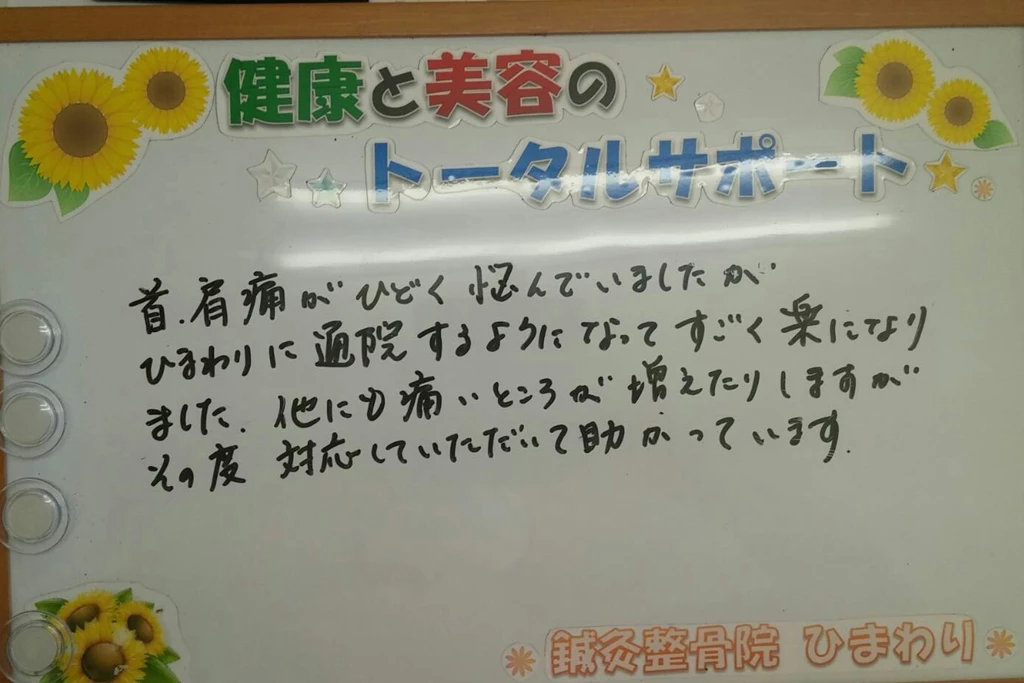 健康と美容の
トータルサポート
首.肩痛がひどく悩んでいましたが
ひまわりに通院するようになってすごく楽になり
ました.他にも痛いところが増えたりしますが
その度 対応していただいて助かっています.
鍼灸整骨院 ひまわり